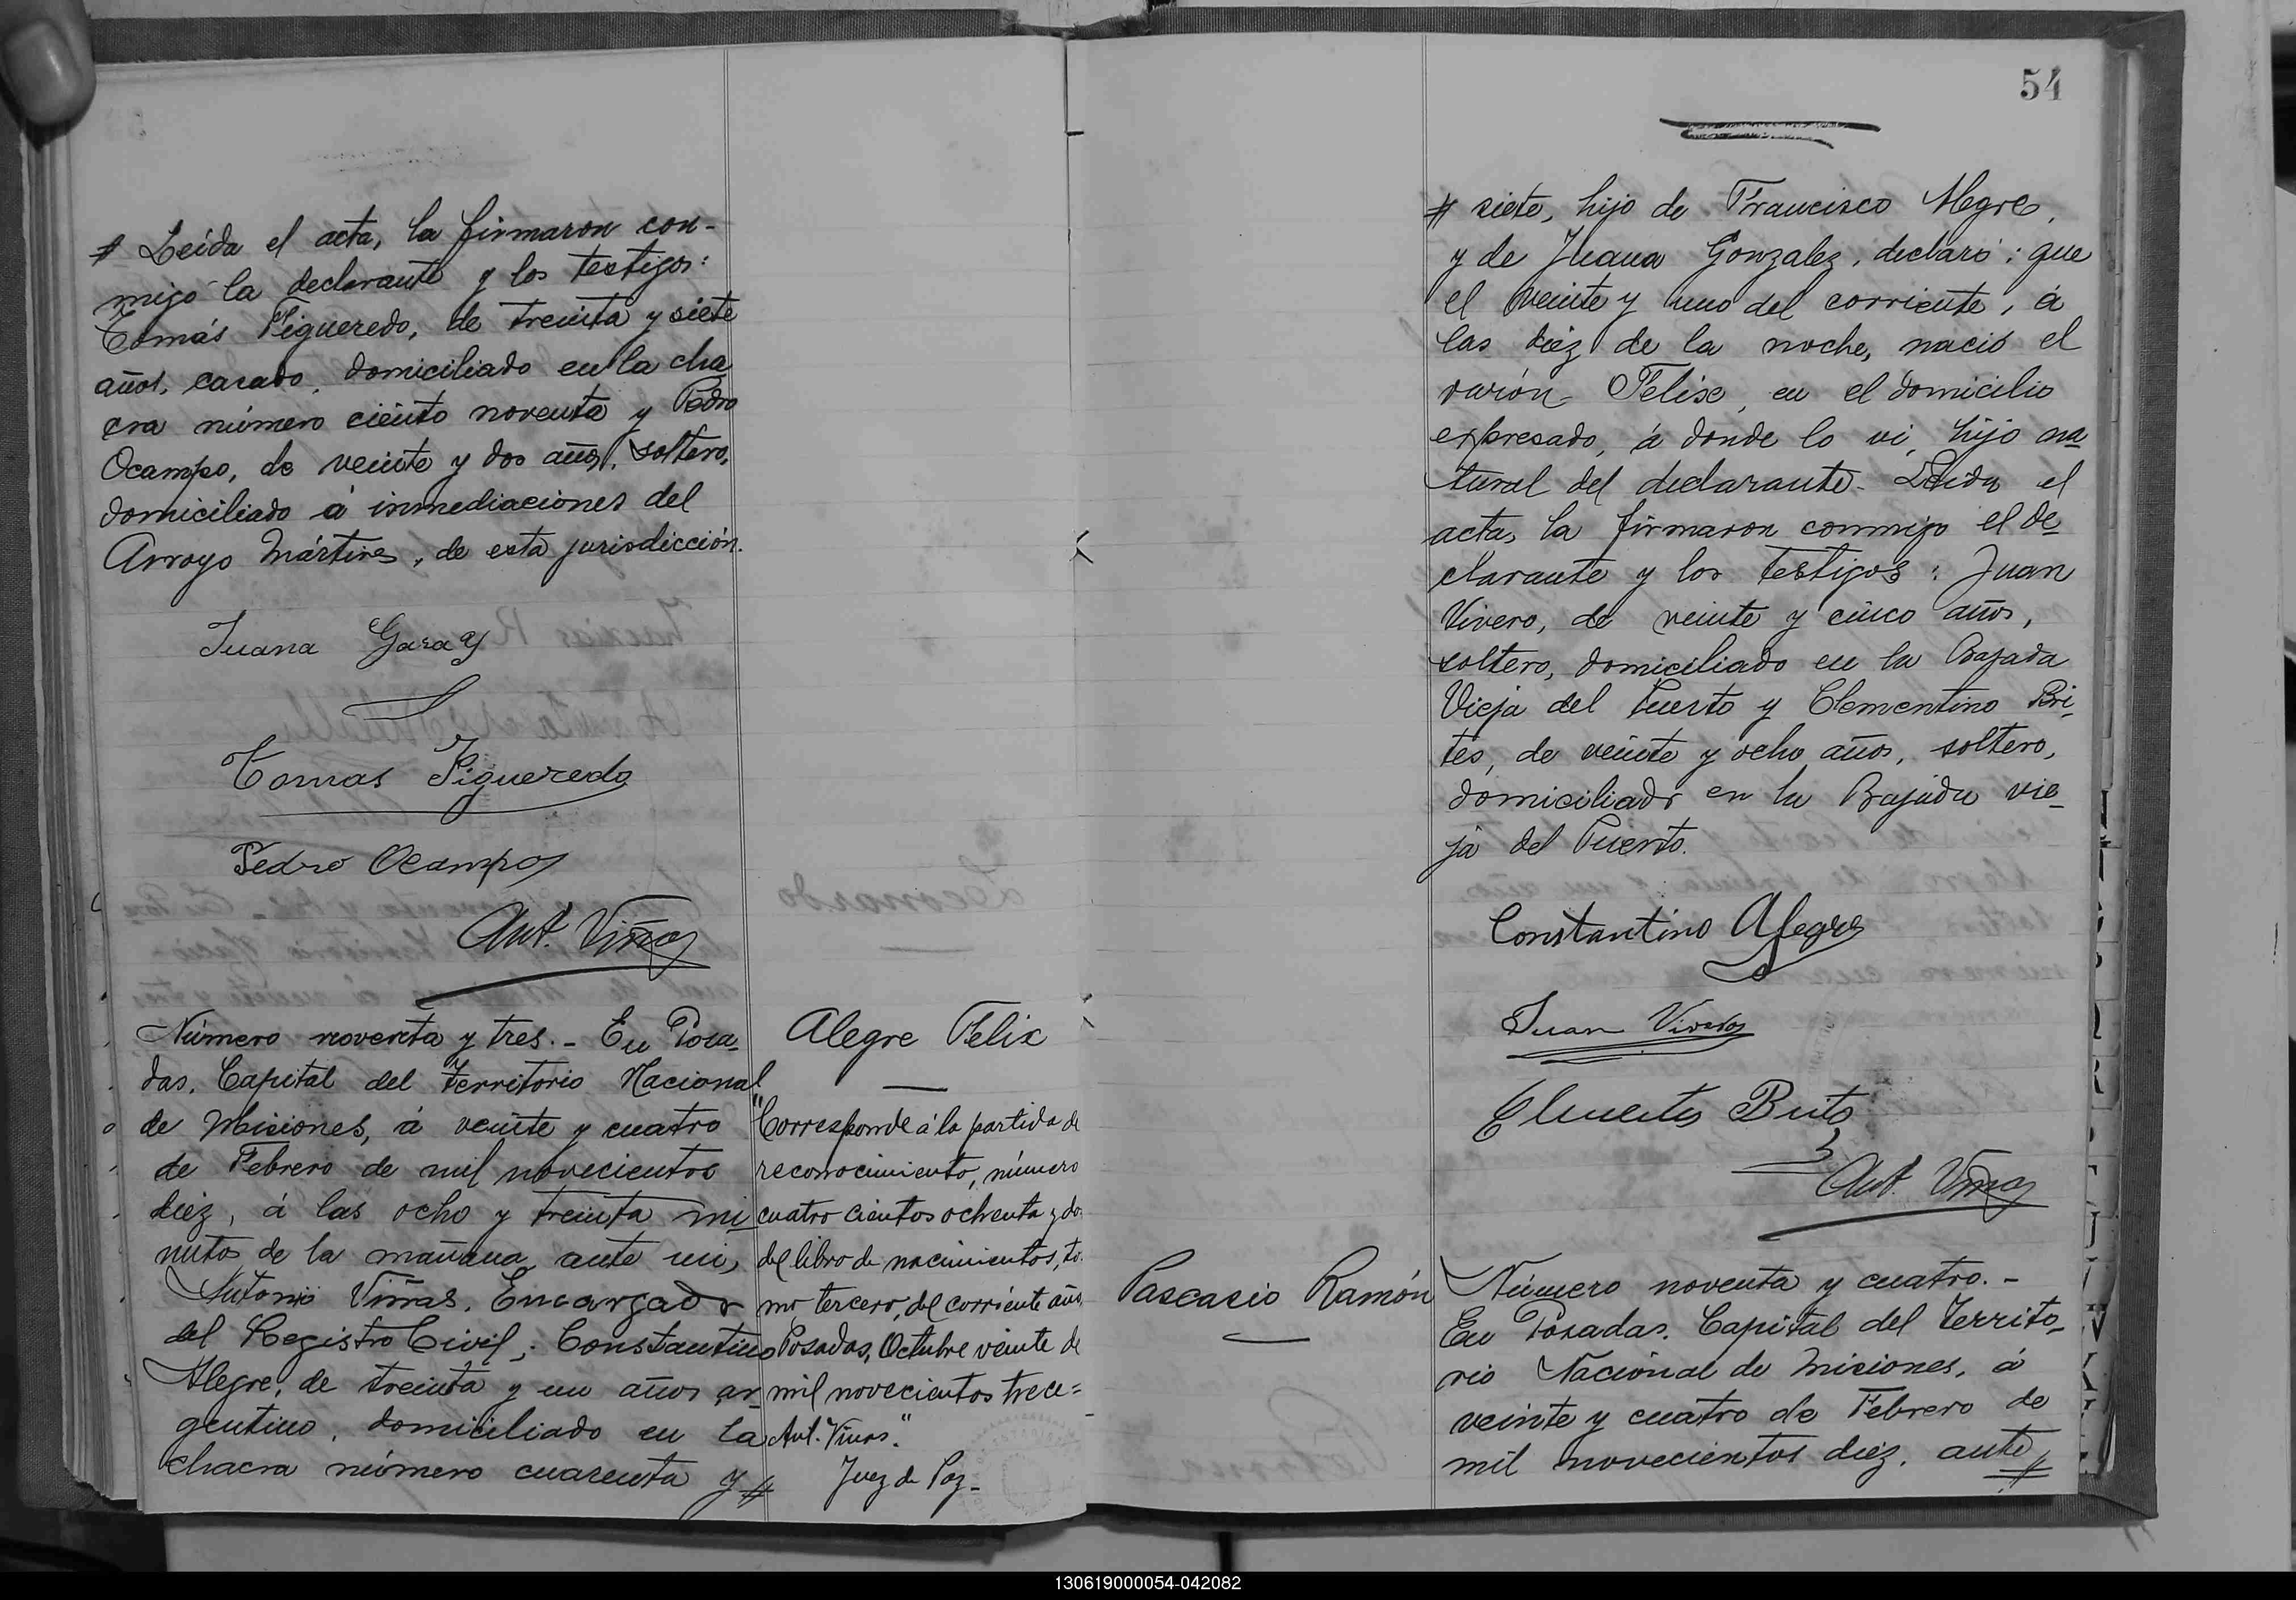 # Leída el acta, la firmaron con-
migo la declarante y los testigos:
Tomás Figueredo, de treinta y siete
años, casado, domiciliado en la cha
cra número ciento noventa y Pedro
Ocampo, de veinte y dos años, soltero,
domiciliado á inmediaciones del
Arroyo Mártires, de esta jurisdicción.
Juana Garay
Tomas Figueredo
Pedro Ocampo
Ant. Viñas
Número noventa y tres. - En Posa-
das, Capital del Territorio Nacional
de Misiones, á veinte y cuatro
de Febrero de mil novecientos
diez, á las ocho y treinta mi
nutos de la mañana, ante mi,
Antonio Viñas, Encargado
del Registro Civil; Constantino
Alegre, de treinta y un años, ar-
gentino, domiciliado en la
chacra número cuarenta y #
Alegre Felix
"Corresponde á la partida de
reconocimiento, número
cuatro cientos ochenta y do
del libro de nacimientos, to-
mo tercero, del corriente año,
Posadas, Octubre veinte de
mil novecientos trece=
Ant. Viñas".
Juez de Paz-
54
# siete, hijo de Francisco Alegre,
y de Juana Gonzalez, declaró: que
el veinte y uno del corriente, á
las diez de la noche, nació el
varón Felix, en el domicilio
expresado, á donde lo vi, hijo na
tural del declarante. Leida el
acta, la firmaron conmigo el de
clarante y los testigos: Juan
Vivero, de veinte y cinco años,
soltero, domiciliado en la Bajada
Vieja del Puerto y Clementino Bri-
tes, de veinte y ocho años, soltero,
domiciliado en la Bajada vie-
ja del Puerto.
Constantino Alegre
Juan Vivero
Ant. Viñas
Pascasio Ramón
Número noventa y cuatro. -
En Posadas, Capital del Territo-
rio Nacional de Misiones, á
veinte y cuatro de Febrero de
mil novecientos diez, ante #
130619000054-042082